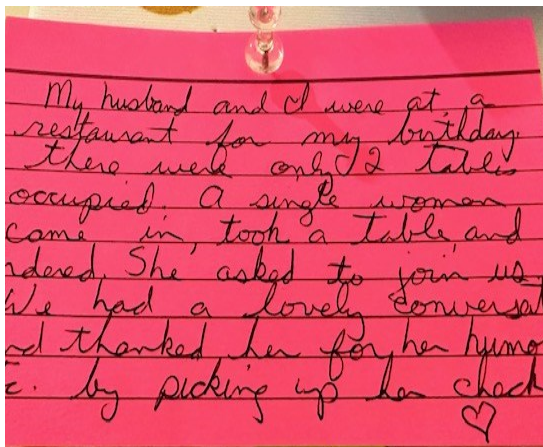 My husband and I were at a
restaurant for my birthday.
there were only 2 tables
occupied. A single women
came in, took a table, and
rdered. She asked to join us.
We had a lovely conversat
nd thanked her for her humo
c. by picking up her check
♡